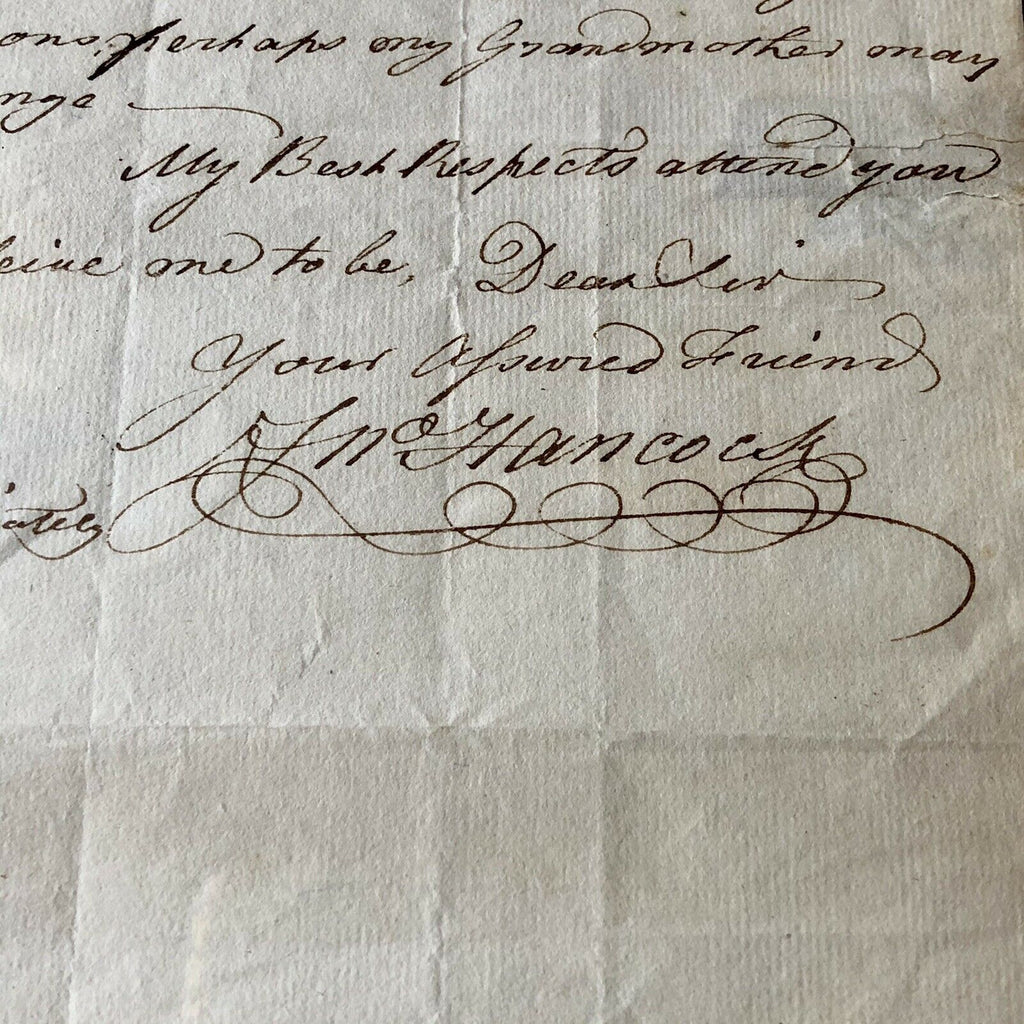 ons, perhaps my Grandmother may
nge
My Best Respects attend you
eive me to be, Dear Sir
Your Assured Friend
Jno Hancock
ately